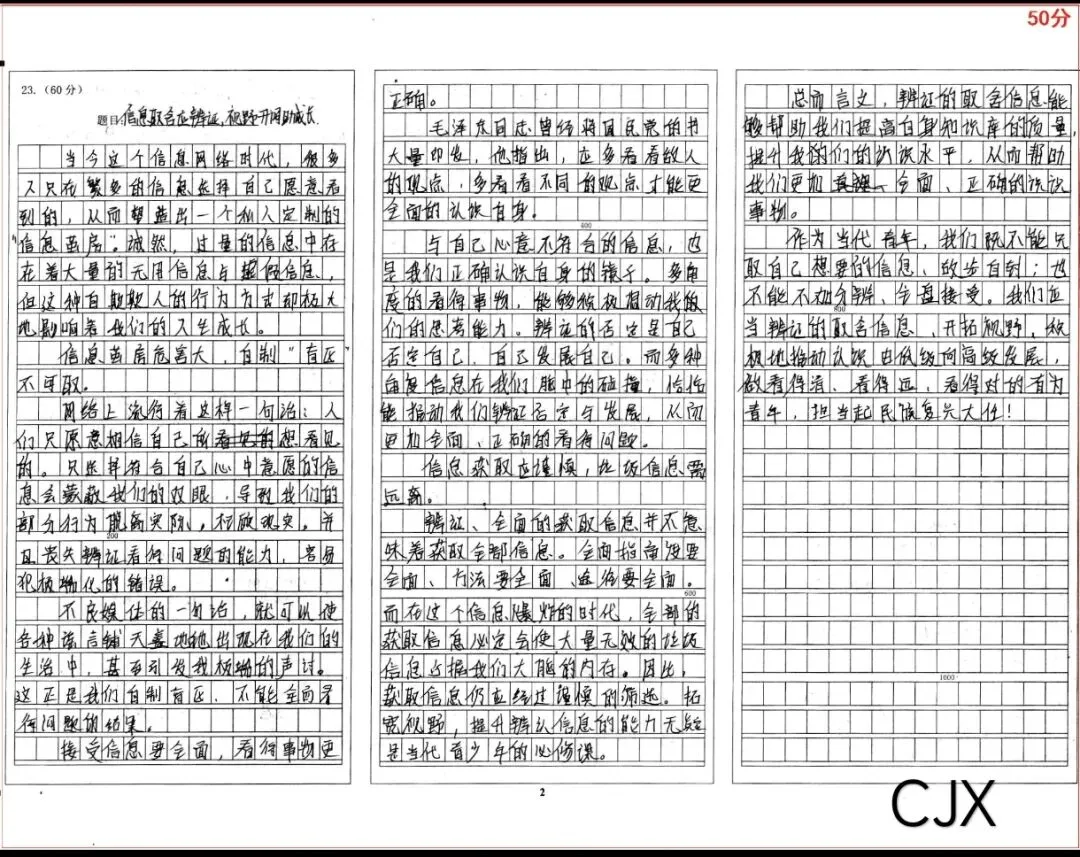 50分
23.(60分)
题目:信息取舍应辨证,视野开阔助成长
当今这个信息网络时代,很多
人只在繁多的信息选择自己愿意看
到的,从而塑造出一个私人定制的
"信息茧房"。诚然,过量的信息中存
在着大量的无用信息与虚假信息,
但这种自欺欺人的行为方式却极大
地影响着我们的人生成长。
信息茧房危害大,自制"盲区
不可取。
网络上流行着这样一句话:人
们只愿意相信自己所想看见
的。只选择符合自己心中意愿的信
息会蒙蔽我们的双眼,导致我们的
部分行为脱离实际,
200
且丧失辨证看待问题的能力,容易
犯极端化的错误。
不良媒体的一句话,就可以使
各种谣言铺天盖地地出现在我们的
生活中,甚至引发极端的声讨。
这正是我们自制盲区,不能全面看
待问题的结果。
接受信息要全面,看待事物更
正确。
毛泽东同志曾经将国民党的书
大量印发,他指出,应多看看敌人
的观点,多看看不同的观点才能更
全面的认识自身。
400
与自己心意不符合的信息,也
是我们正确认识自身的镜子。多角
度的看待事物,能够积极推动我
们的思考能力。辨证的否定是自己
否定自己,自己发展自己。而多种
角度信息在我们脑中的碰撞,恰恰
能推动我们辨证否定与发展,从而
更加全面、正确的看待问题。
信息获取应谨慎,垃圾信息需
远离。
辨证、全面的获取信息并不意
味着获取全部信息。全面指角度要
全面、方法要全面、途径要全面。
600
而在这个信息爆炸的时代,全部的
获取信息必定会使大量无效的垃圾
信息占据我们大脑的内存。因此,
获取信息仍应经过谨慎的筛选。拓
宽视野,提升辨认信息的能力无疑
是当代青少年的必修课。
2
总而言之,辨证的取舍信息能
够帮助我们提高自身知识库的质量,
提升我们的认识水平,从而帮助
我们更加全面、正确的认识
事物。
作为当代青年,我们既不能只
取自己想要的信息、故步自封;也
不能不加分辨、全盘接受。我们应
800
当辨证的取舍信息、开拓视野,积
极地推动认识由低级向高级发展,
做看得清、看得远、看得对的有为
青年,担当起民族复兴大任!
1000
CJX